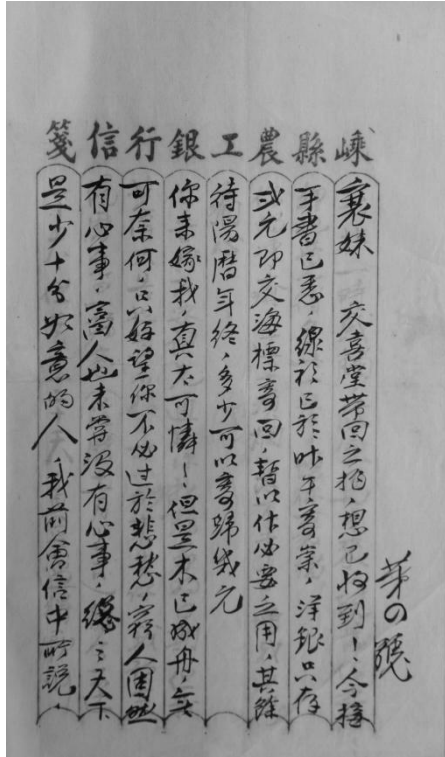 嵊縣農工銀行信箋
第の號
襄妹 交喜堂带回之 想已收到!今接
手書已悉,線衫已於昨午寄 ,洋銀只存
弍元即交海標寄回,暫以作必要之用,其餘
待陽曆年終,多少可以寄歸幾元
你来嫁我,真太可憐!但是木已成舟,無
可奈何,只好望你不必过於悲愁,窮人固然
有心事,富人也未嘗没有心事,縂之天下
是少十分如意的人,我前會信中所說,